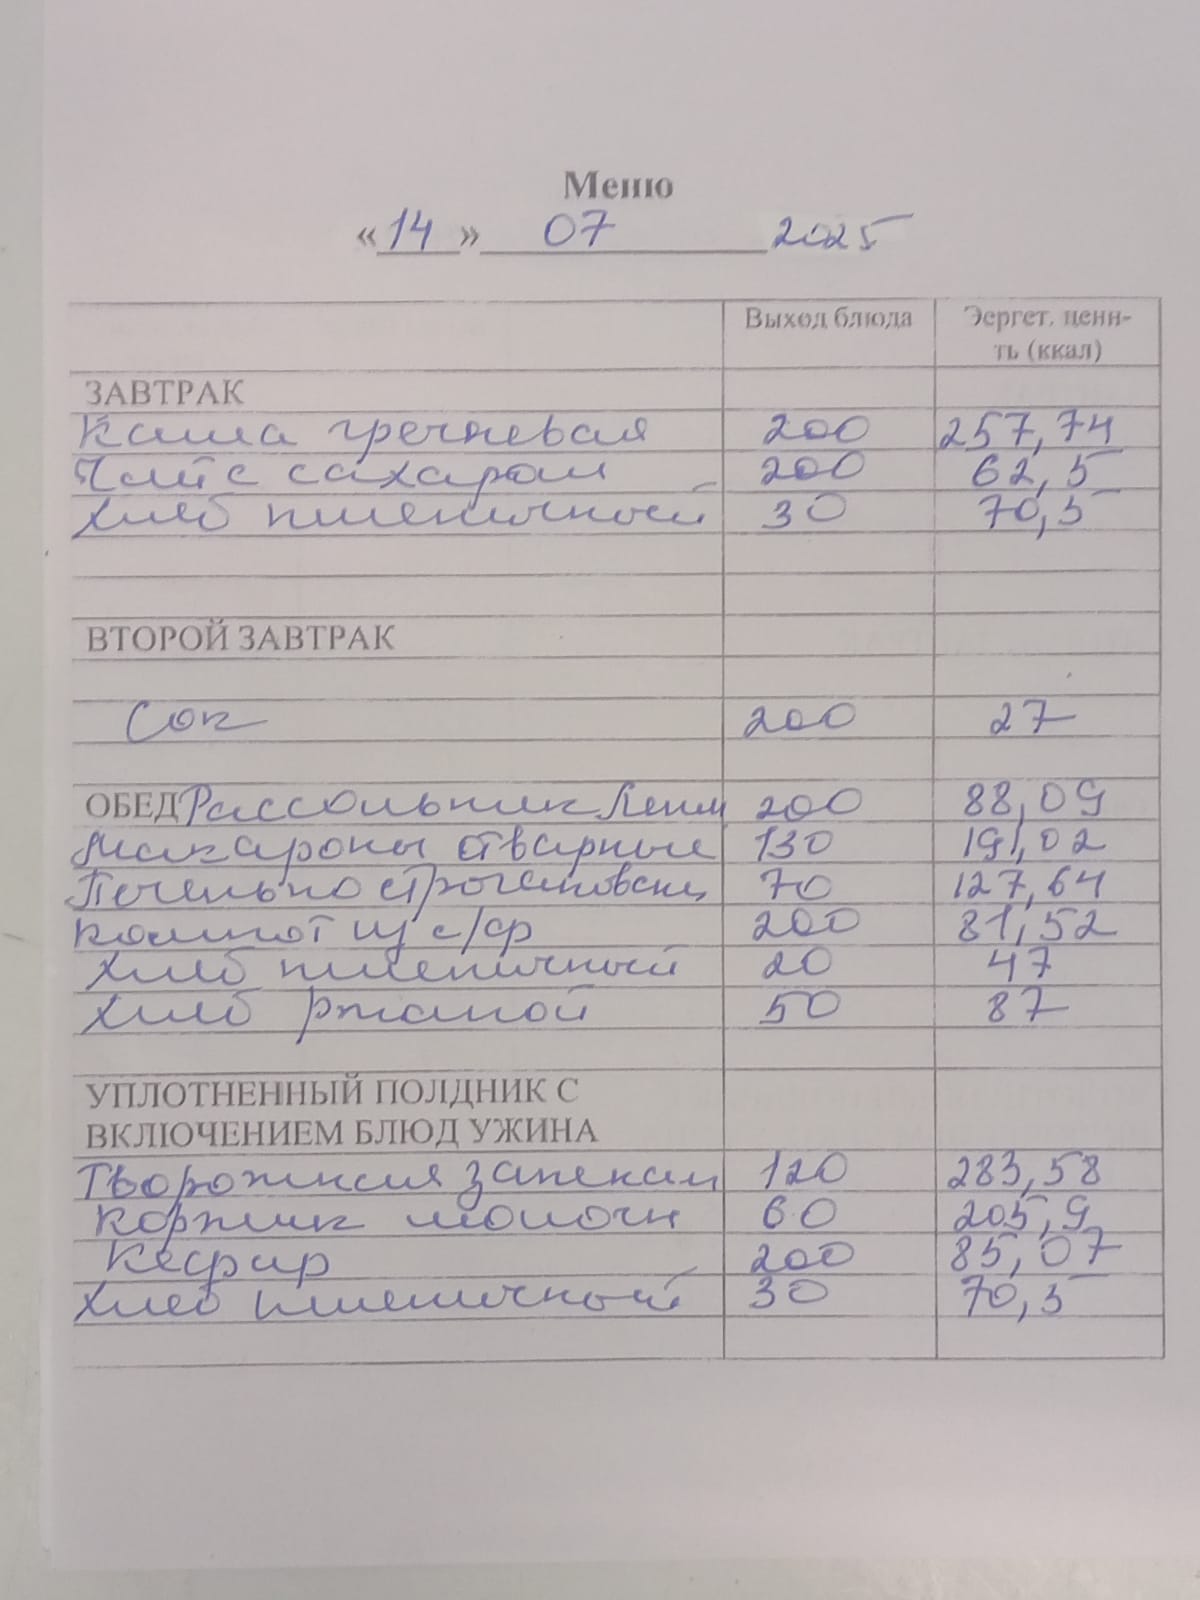 Меню
«14» 07 2025
Выход блюда Эергет. ценн-
ть (ккал)
ЗАВТРАК
Каша гречневая 200 257,74
Чай с сахаром 200 62,5
Хлеб пшеничный 30 70,5
ВТОРОЙ ЗАВТРАК
Сок 200 27
ОБЕД Рассольник Ленин 200 88,09
Макароны отварные 130 191,02
Печень по строгановски 70 127,64
Компот из с/ф 200 81,52
Хлеб пшеничный 20 47
Хлеб ржаной 50 87
УПЛОТНЕННЫЙ ПОЛДНИК С
ВКЛЮЧЕНИЕМ БЛЮД УЖИНА
Творожная запекан 120 283,58
Коржик молочн 60 205,9
Кефир 200 85,07
Хлеб пшеничный 30 70,5